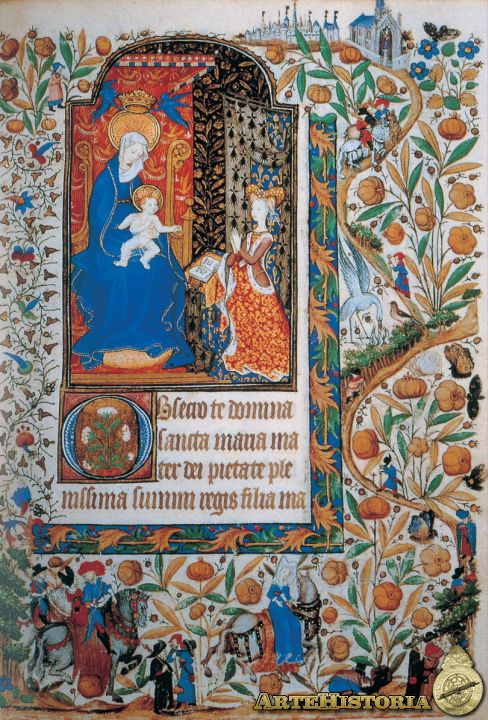 Obsecro te domina
sancta maria ma
ter dei pietate ple
nissima summi regis filia ma
ArteHistoria